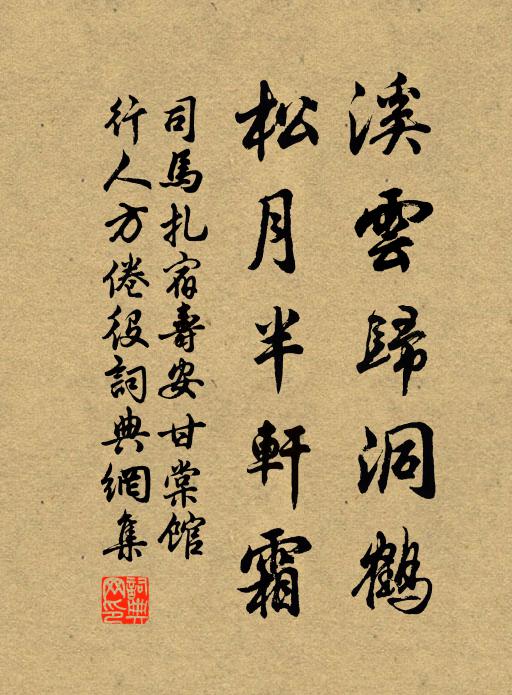 溪雲歸洞鶴
松月半軒霜
司馬扎宿壽安甘棠館
行人方倦役詞典網集
詞典網印